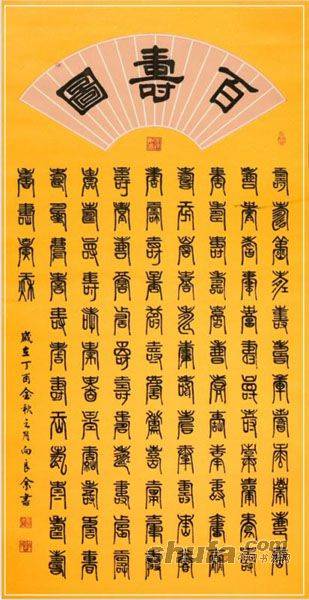 百壽圖
壽壽壽壽壽壽壽壽壽壽壽壽
壽壽壽壽壽壽壽壽壽壽壽壽
壽壽壽壽壽壽壽壽壽壽壽壽
壽壽壽壽壽壽壽壽壽壽壽壽
壽壽壽壽壽壽壽壽壽壽壽壽
壽壽壽壽壽壽壽壽壽壽壽壽
壽壽壽壽壽壽壽壽壽壽壽壽
壽壽壽壽壽壽壽壽壽壽壽壽
壽壽壽壽
歲在丁酉金秋之月向良余書
shufa.com